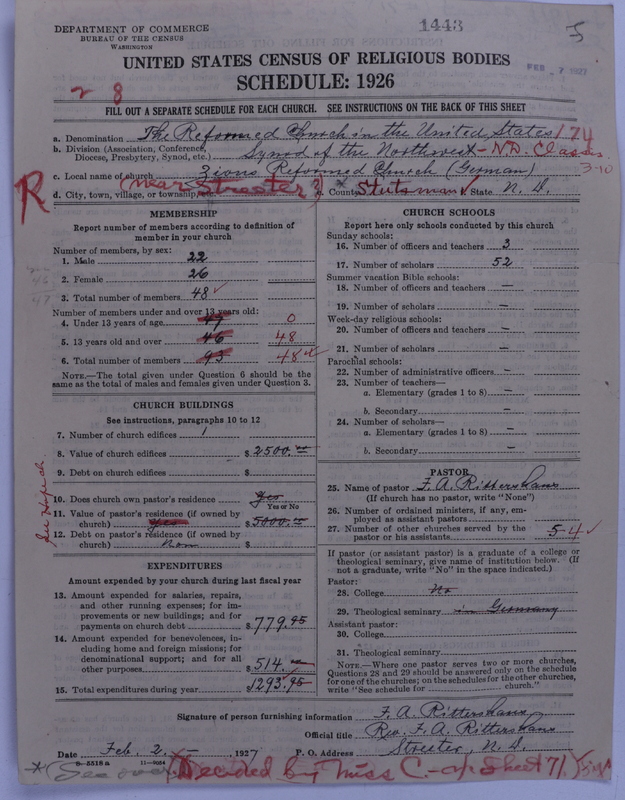 DEPARTMENT OF COMMERCE
BUREAU OF THE CENSUS
WASHINGTON
1443
5
FEB 7 1927
UNITED STATES CENSUS OF RELIGIOUS BODIES
SCHEDULE: 1926
2 8
FILL OUT A SEPARATE SCHEDULE FOR EACH CHURCH. SEE INSTRUCTIONS ON THE BACK OF THIS SHEET
a. Denomination The Reformed Church in the United States 174
b. Division (Association, Conference, Diocese, Presbytery, Synod, etc.) Synod of the Northwest - N.D. Classis
3-10
c. Local name of church Zions Reformed Church (German)
R
d. City, town, village, or township, etc. (near Streeter?) e. County * Stutsman State N. D.
MEMBERSHIP
Report number of members according to definition of member in your church
Number of members, by sex:
1. Male 22
2. Female 26
3. Total number of members 48
Number of members under and over 13 years old:
4. Under 13 years of age 47 0
5. 13 years old and over 46 48
6. Total number of members 93 48
NOTE.—The total given under Question 6 should be the same as the total of males and females given under Question 3.
CHURCH BUILDINGS
See instructions, paragraphs 10 to 12
7. Number of church edifices 1
8. Value of church edifices $ 2500.
9. Debt on church edifices $
10. Does church own pastor's residence Yes
Yes or No
11. Value of pastor's residence (if owned by church) Yes $ 5000.
12. Debt on pastor's residence (if owned by church) None $
EXPENDITURES
Amount expended by your church during last fiscal year
13. Amount expended for salaries, repairs, and other running expenses; for improvements or new buildings; and for payments on church debt $ 779.95
14. Amount expended for benevolences, including home and foreign missions; for denominational support; and for all other purposes $ 514.
15. Total expenditures during year $ 1293.95
CHURCH SCHOOLS
Report here only schools conducted by this church
Sunday schools:
16. Number of officers and teachers 3
17. Number of scholars 52
Summer vacation Bible schools:
18. Number of officers and teachers —
19. Number of scholars —
Week-day religious schools:
20. Number of officers and teachers —
21. Number of scholars —
Parochial schools:
22. Number of administrative officers —
23. Number of teachers—
a. Elementary (grades 1 to 8) —
b. Secondary —
24. Number of scholars—
a. Elementary (grades 1 to 8) —
b. Secondary —
PASTOR
25. Name of pastor F. A. Rittershaus
(If church has no pastor, write "None")
26. Number of ordained ministers, if any, employed as assistant pastors
27. Number of other churches served by the pastor or his assistants 5-4
If pastor (or assistant pastor) is a graduate of a college or theological seminary, give name of institution below. (If not a graduate, write "No" in the space indicated.)
Pastor:
28. College No
29. Theological seminary in Germany
Assistant pastor:
30. College
31. Theological seminary
NOTE.—Where one pastor serves two or more churches, Questions 28 and 29 should be answered only on the schedule for one of the churches; on the schedules for the other churches, write "See schedule for church."
Signature of person furnishing information F. A. Rittershaus
Official title Rev. F. A. Rittershaus
Date Feb. 2 1927 P. O. Address Streeter, N. D.
8-5518 a 11-9084
* (See over) (Decided by Miss C- on Sheet 71.)